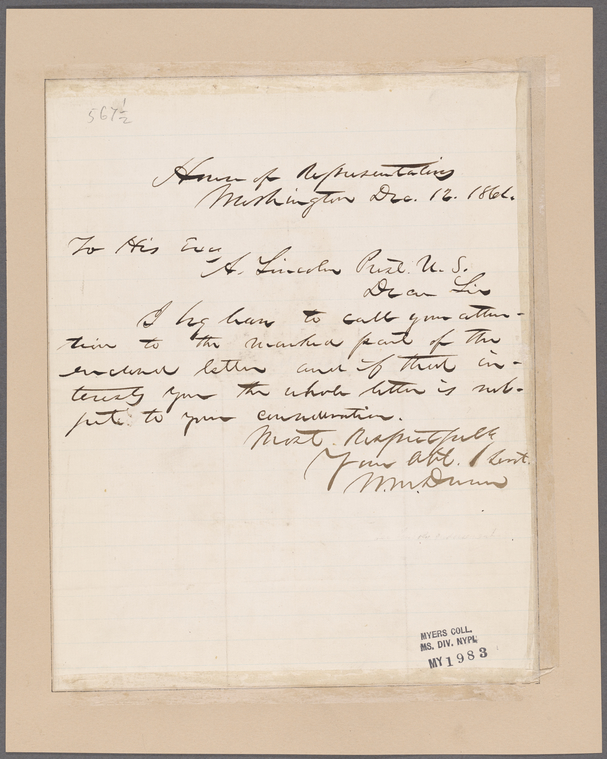 567 1/2
House of Representatives
Washington Dec. 12. 1861.
To His Exc
A. Lincoln Prest. U. S.
Dear Sir
I beg leave to call your atten-
tion to the marked part of the
enclosed letter and if that in-
terests you the whole letter is sub-
ject to your consideration.
Most Respectfully
Your Obt. Servt.
W. M. Dunn
MYERS COLL.
MS. DIV. NYPL
MY 1983